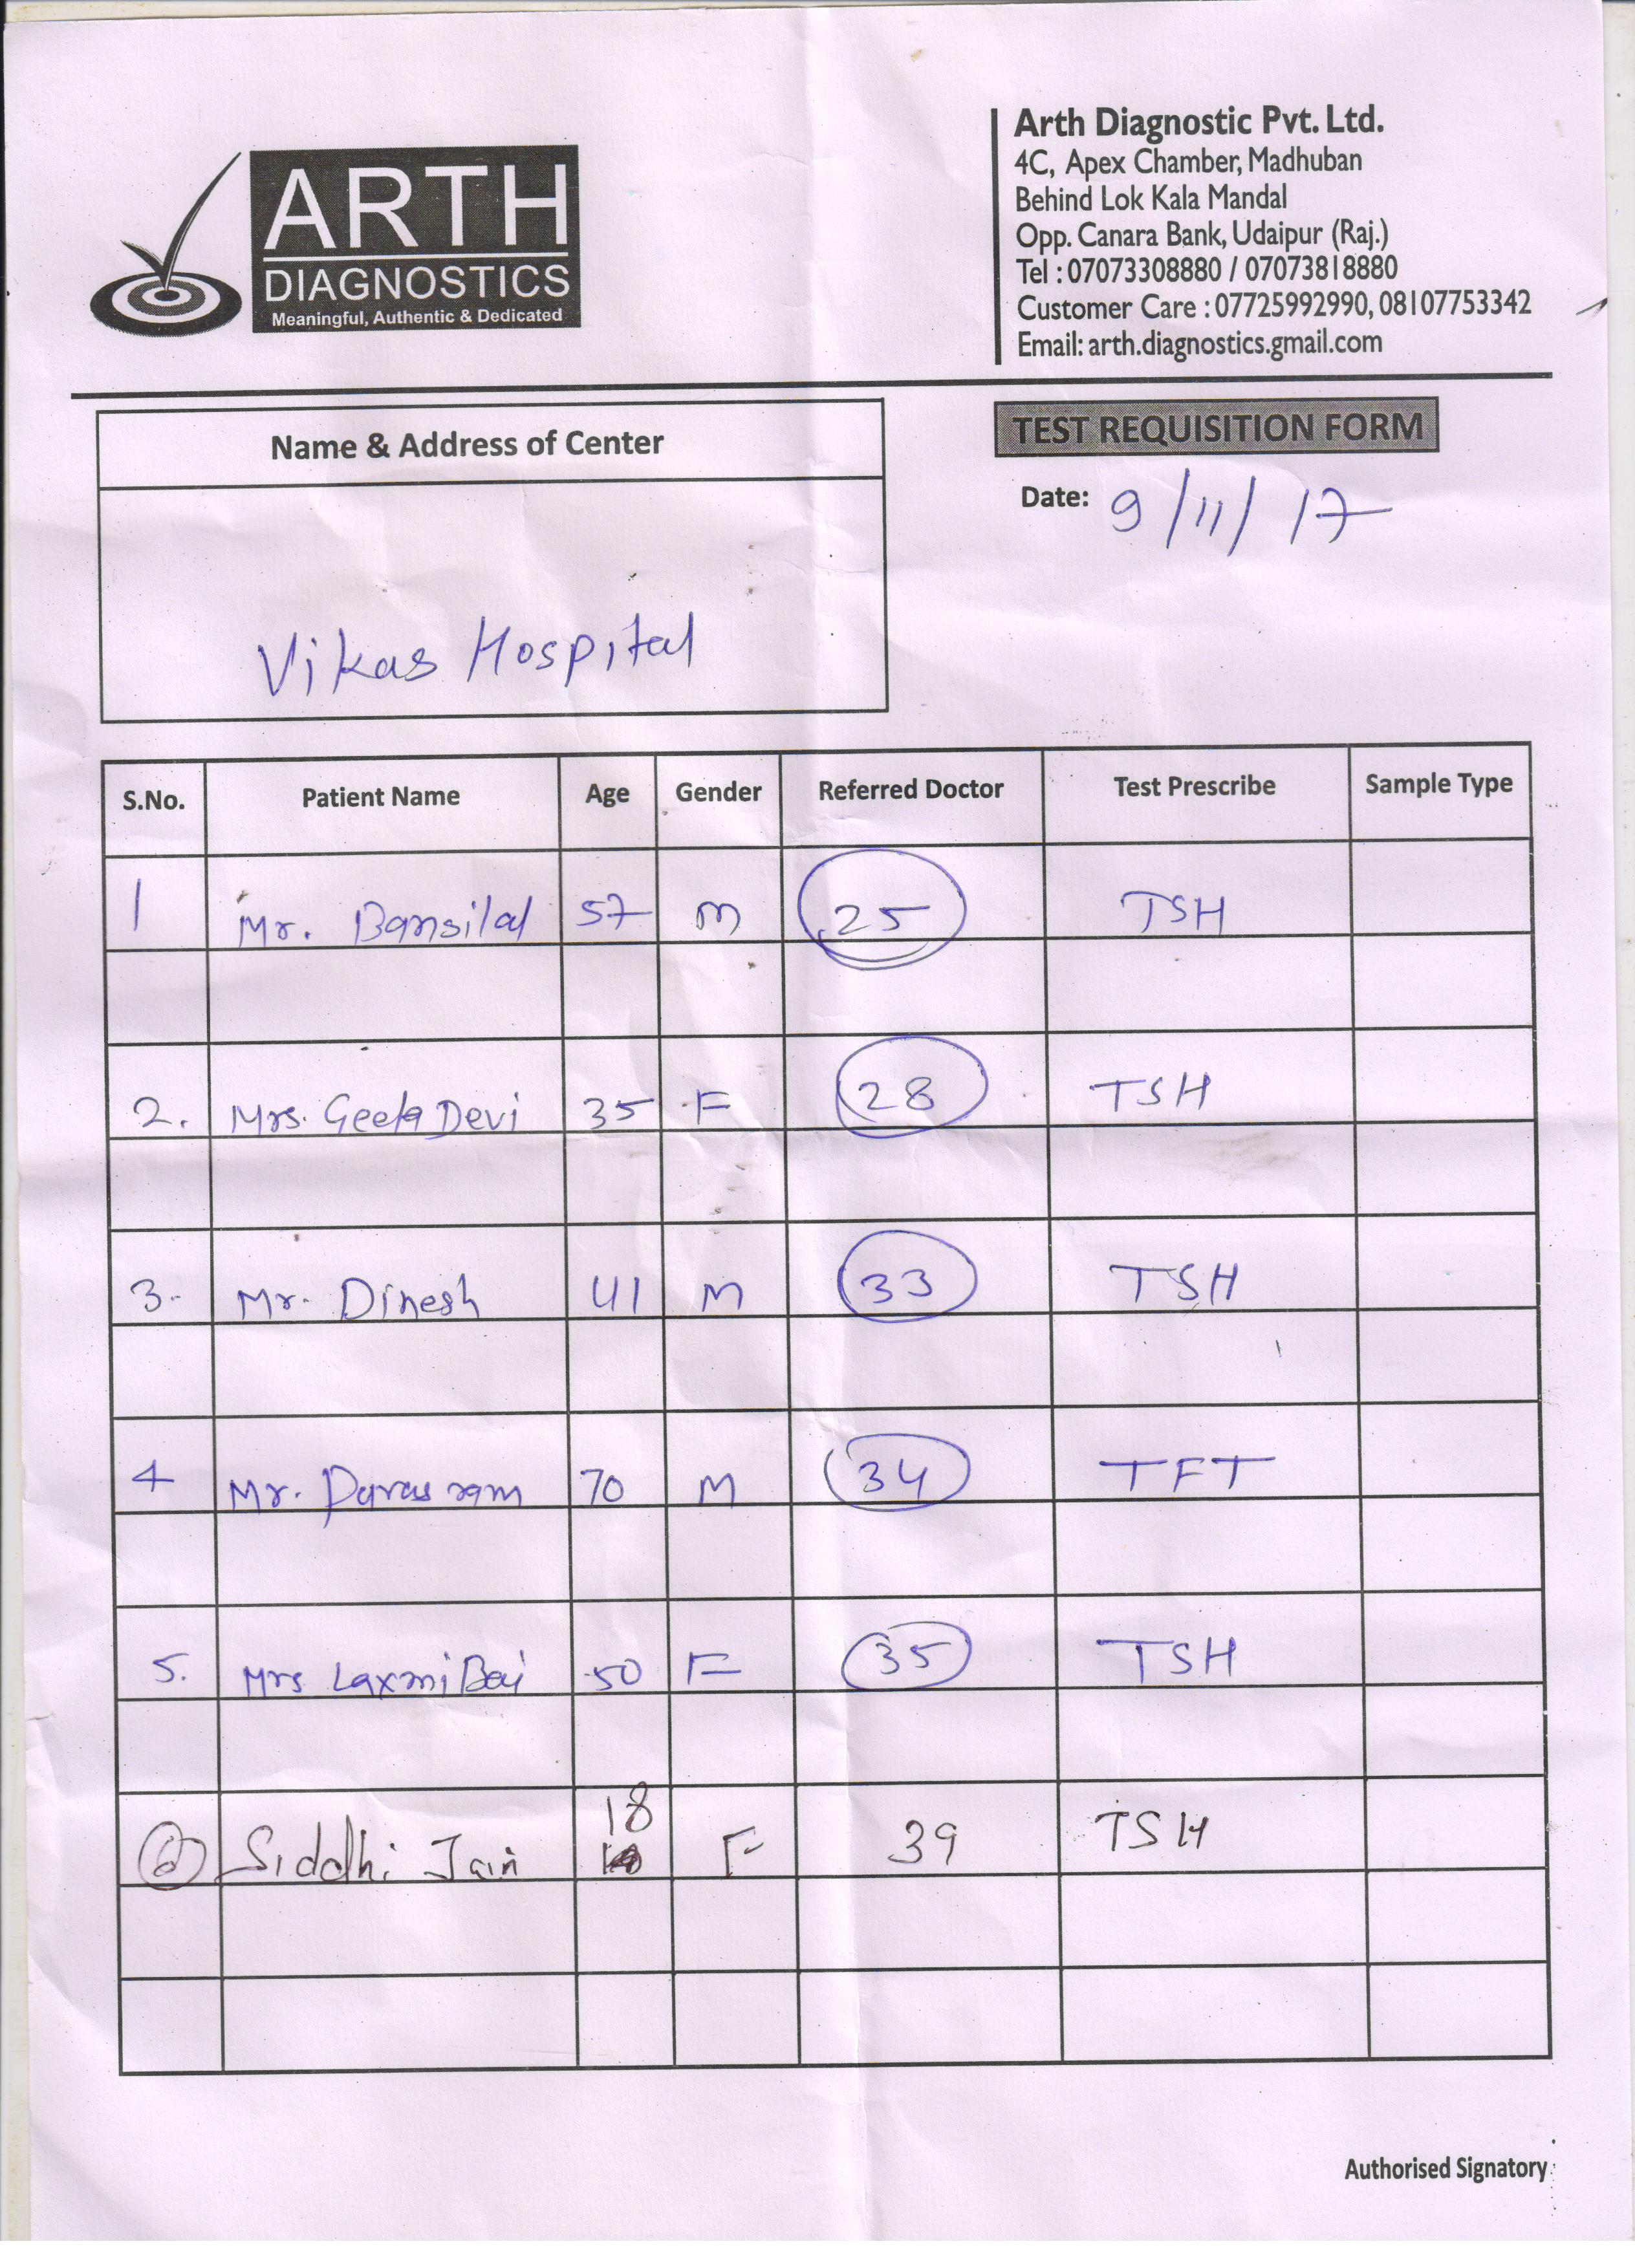 ARTH
DIAGNOSTICS
Meaningful, Authentic & Dedicated
Arth Diagnostic Pvt. Ltd.
4C, Apex Chamber, Madhuban
Behind Lok Kala Mandal
Opp. Canara Bank, Udaipur (Raj.)
Tel : 07073308880 / 07073818880
Customer Care : 07725992990, 08107753342
Email: arth.diagnostics.gmail.com
Name & Address of Center
Vikas Hospital
TEST REQUISITION FORM
Date: 9/11/17
S.No. Patient Name Age Gender Referred Doctor Test Prescribe Sample Type
1 Mr. Bansilal 57 M 25 TSH
2. Mrs. Geeta Devi 35 F 28 TSH
3. Mr. Dinesh 41 M 33 TSH
4 Mr. Paras ram 70 M 34 TFT
5. Mrs Laxmi Bai 50 F 35 TSH
Siddhi Jain 18 F 39 TSH
Authorised Signatory